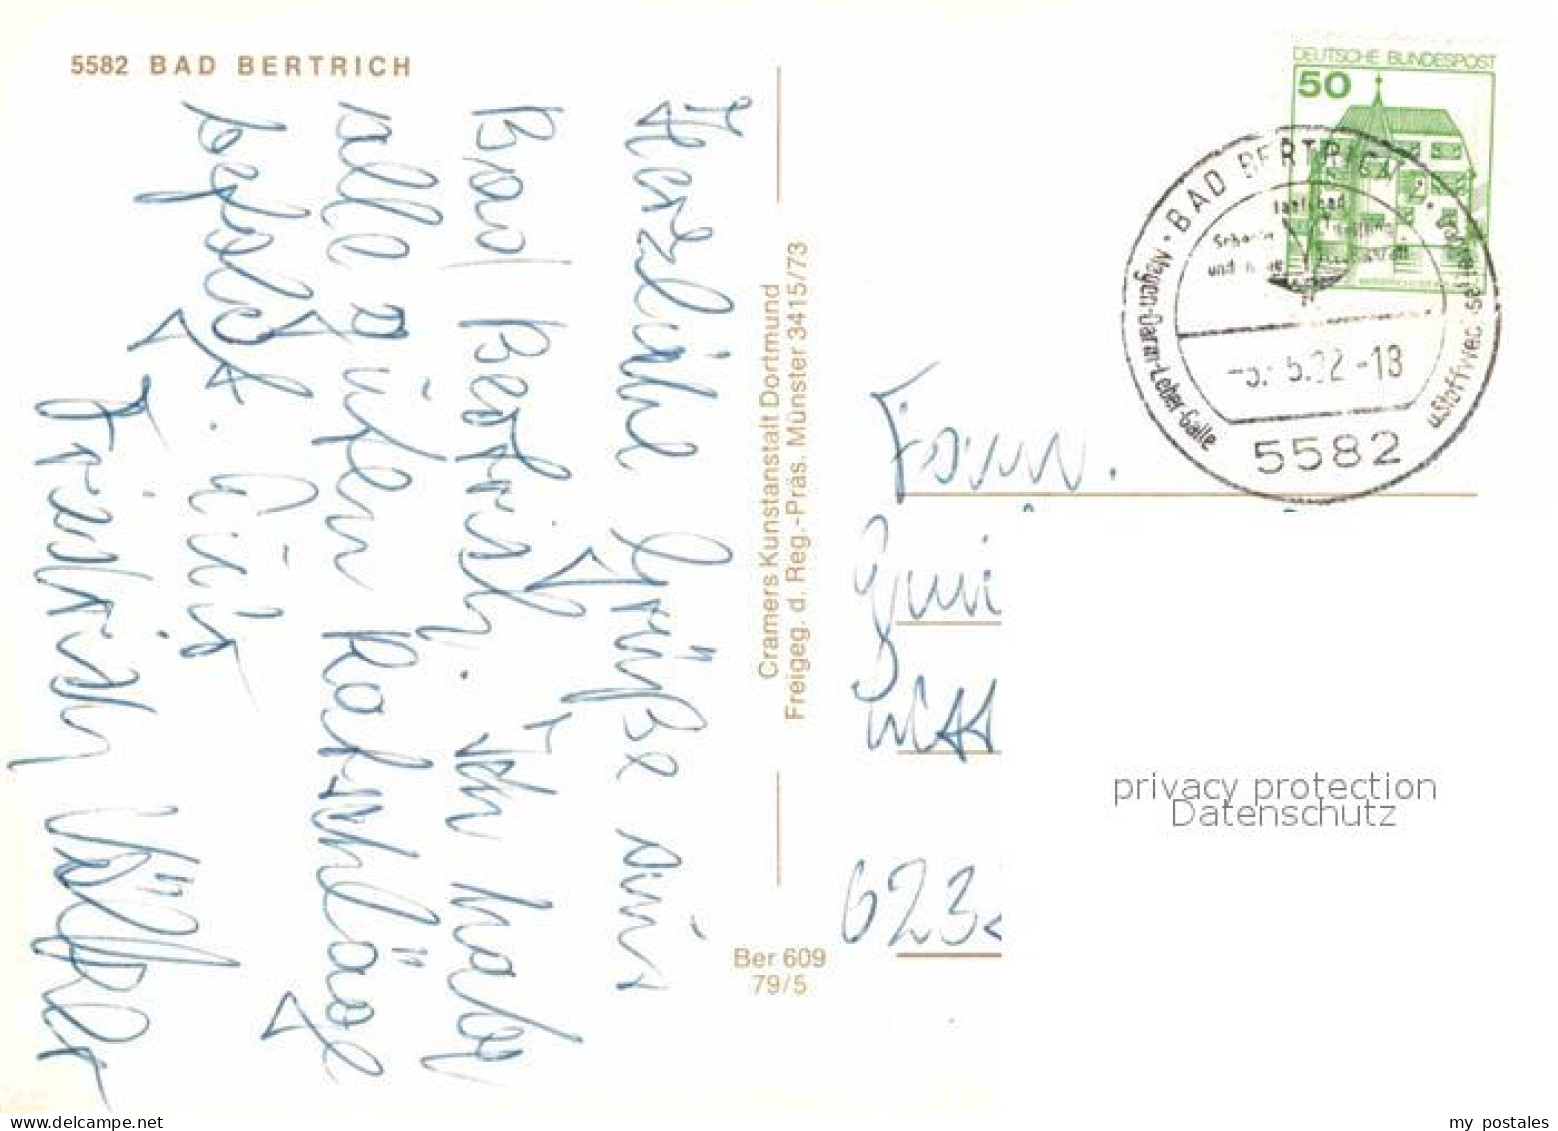 5582 BAD BERTRICH
Herzliche Grüße aus
Bad Bertrich. Ich habe
alle guten Ratschläge
befolgt. Euer
Friedrich Völker
Cramers Kunstanstalt Dortmund
Freigeg. d. Reg.-Präs. Münster 3415/73
Ber 609
79/5
DEUTSCHE BUNDESPOST
50
BAD BERTRICH
Magen-Darm-Leber-Galle
u. Stoffwec
5582
Fam.
623
privacy protection
Datenschutz
my postales